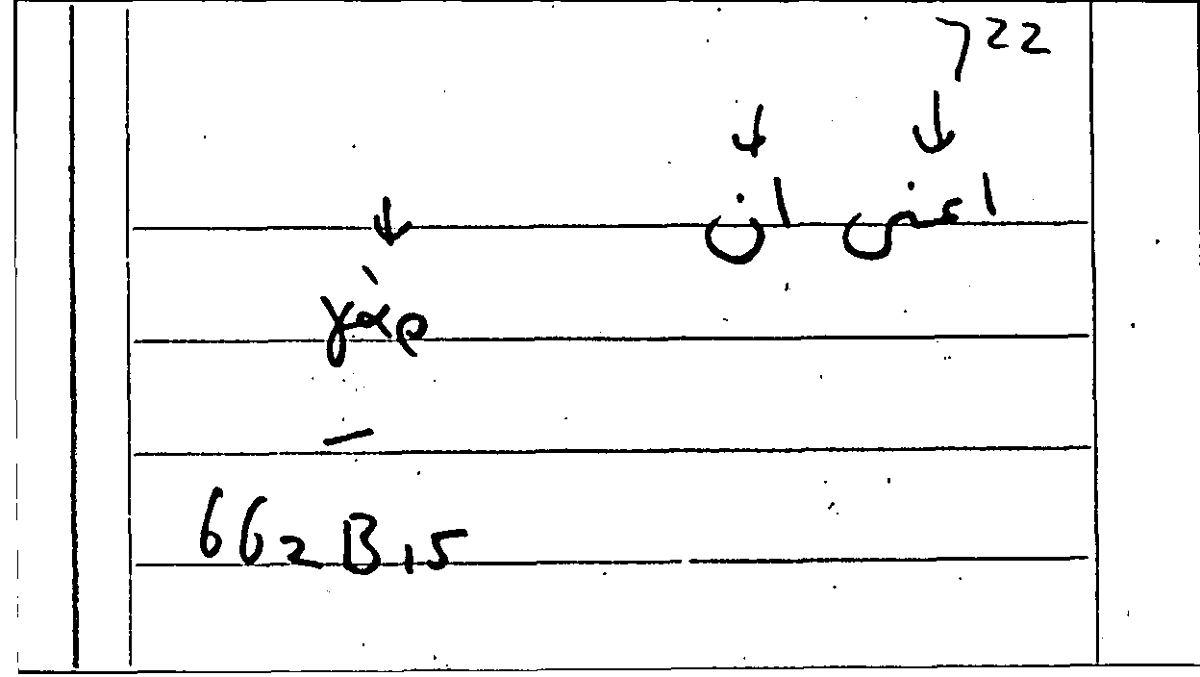 722
اعنى ان
γὰρ
—
662 B 15